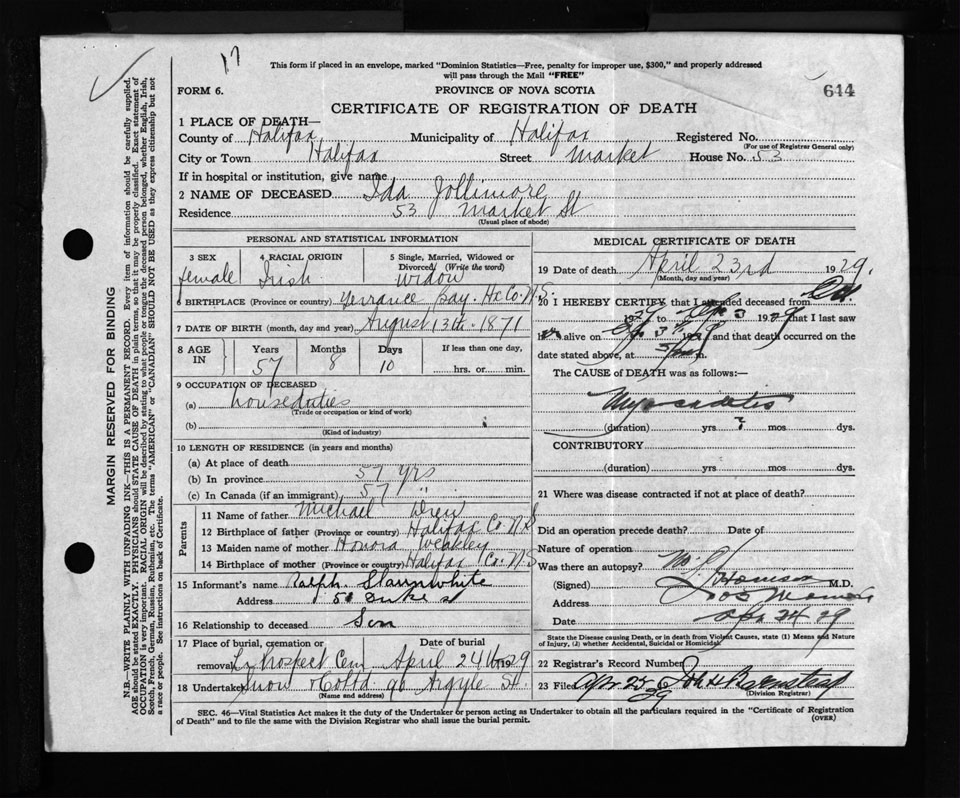 17
This form if placed in an envelope, marked "Dominion Statistics—Free, penalty for improper use, $300," and properly addressed
will pass through the Mail "FREE"
644
FORM 6.
PROVINCE OF NOVA SCOTIA
CERTIFICATE OF REGISTRATION OF DEATH
1 PLACE OF DEATH—
County of Halifax Municipality of Halifax Registered No.
(For use of Registrar General only)
City or Town Halifax Street Market House No. 53
If in hospital or institution, give name
2 NAME OF DECEASED Ida Jollimore
Residence 53 Market St
(Usual place of abode)
MARGIN RESERVED FOR BINDING
N.B.—WRITE PLAINLY WITH UNFADING INK—THIS IS A PERMANENT RECORD. Every item of information should be carefully supplied.
AGE should be stated EXACTLY. PHYSICIANS should STATE CAUSE OF DEATH in plain terms, so that it may be properly classified. Exact statement of
OCCUPATION is very important. RACIAL ORIGIN will be described by stating to what people or tongue the deceased person belonged, whether English, Irish,
Scotch, French, German, Russian, Ruthenian, etc. The terms "AMERICAN" or "CANADIAN" SHOULD NOT BE USED as they express citizenship but not
a race or people. See instructions on back of Certificate.
PERSONAL AND STATISTICAL INFORMATION
3 SEX female
4 RACIAL ORIGIN Irish
5 Single, Married, Widowed or
Divorced (Write the word)
Widow
6 BIRTHPLACE (Province or country) Terrance Bay. Hx Co. N.S.
7 DATE OF BIRTH (month, day and year) August 13th. 1871
8 AGE IN
Years Months Days If less than one day,
57 8 10 hrs. or min.
9 OCCUPATION OF DECEASED
(a) house duties
(Trade or occupation or kind of work)
(b)
(Kind of industry)
10 LENGTH OF RESIDENCE (in years and months)
(a) At place of death
(b) In province 57 yrs
(c) In Canada (if an immigrant) 57 "
Parents
11 Name of father Michael Drew
12 Birthplace of father (Province or country) Halifax Co N.S
13 Maiden name of mother Honora Weakley
14 Birthplace of mother (Province or country) Halifax Co. N.S
15 Informant's name Ralph Slaunwhite
Address 51 Duke st
16 Relationship to deceased Son
17 Place of burial, cremation or Date of burial
removal Prospect Cem April 24 1929
18 Undertaker Snow & Co Ltd 90 Argyle St.
(Name and address)
MEDICAL CERTIFICATE OF DEATH
19 Date of death April 23rd 1929.
(Month, day and year)
20 I HEREBY CERTIFY that I attended deceased from
to 1929 that I last saw
alive on and that death occurred on the
date stated above, at m.
The CAUSE of DEATH was as follows:—
Myocarditis
(duration) yrs ? mos dys.
CONTRIBUTORY
(duration) yrs mos dys.
21 Where was disease contracted if not at place of death?
Did an operation precede death? Date of
Nature of operation
Was there an autopsy? No
(Signed) M.D.
Address
Date Apr 24 29
State the Disease causing Death, or in death from Violent Causes, state (1) Means and Nature
of Injury, (2) whether Accidental, Suicidal or Homicidal.
22 Registrar's Record Number
23 Filed Apr 25 29 John H
(Division Registrar)
SEC. 46—Vital Statistics Act makes it the duty of the Undertaker or person acting as Undertaker to obtain all the particulars required in the "Certificate of Registration
of Death" and to file the same with the Division Registrar who shall issue the burial permit.
(OVER)